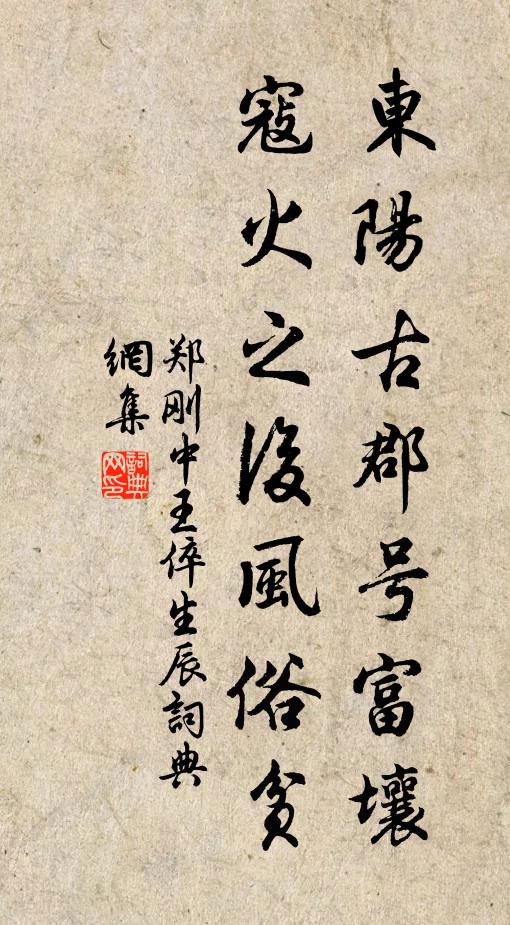 東陽古郡号富壤
寇火之後風俗貧
郑刚中王倅生辰詞典
網集
詞典
网印